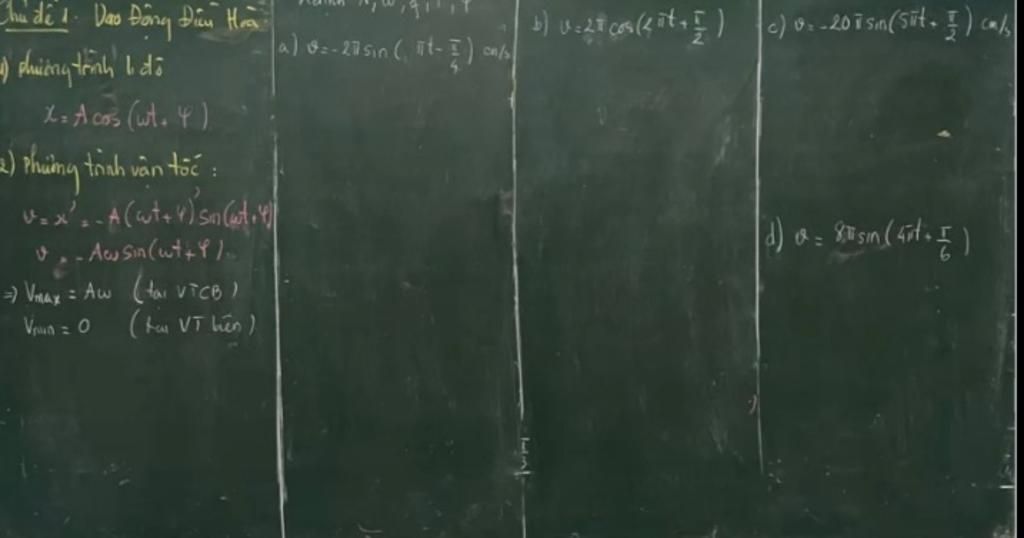 Chủ đề 1. Dao Động Điều Hoà
1) phương trình li độ
x = A cos (ωt + φ)
2) phương trình vận tốc :
v = x' = -A(ωt+φ)' sin(ωt+φ)
v = -Aω sin(ωt+φ).
=> Vmax = Aω (tại VTCB)
Vmin = 0 (tại VT biên)
a) v = -2π sin( πt - π/4 ) cm/s
b) v = 2π cos(4πt + π/2)
c) v = -20π sin(5πt + π/2) cm/s
d) v = 8π sin(4πt + π/6)